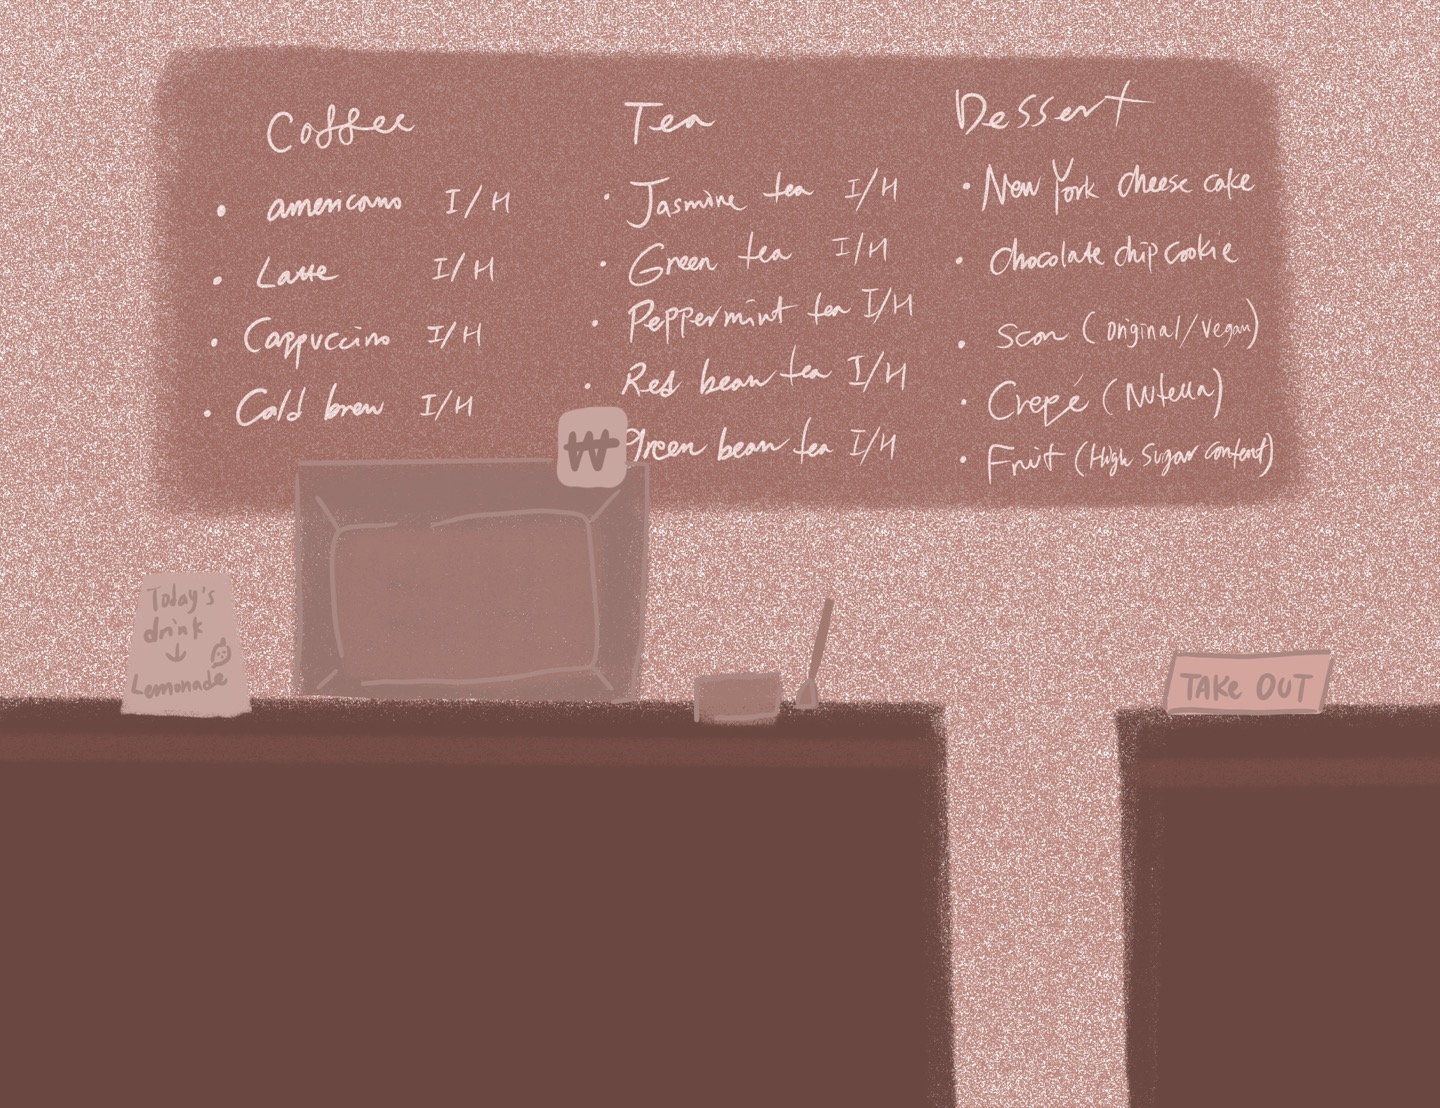 Coffee
• americano I/H
• Latte I/H
• Cappuccino I/H
• Cold brew I/H
Tea
• Jasmine tea I/H
• Green tea I/H
• Peppermint tea I/H
• Red bean tea I/H
green bean tea I/H
Dessert
• New York cheese cake
• chocolate chip cookie
• scon (original/vegan)
• Crepé (Nutella)
• Fruit (High sugar content)
₩
Today's
drink
↓
Lemonade
TAKe OUT